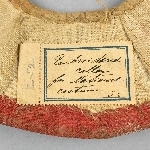 Embroidered
collar
for National
costume